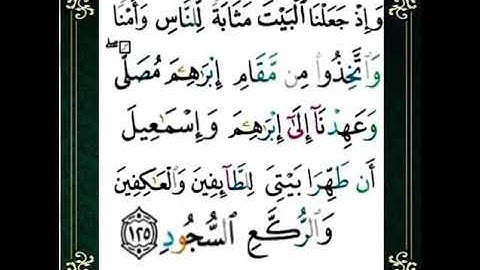 وَإِذْ جَعَلْنَا ٱلْبَيْتَ مَثَابَةً لِّلنَّاسِ وَأَمْنًا
وَٱتَّخِذُوا۟ مِن مَّقَامِ إِبْرَٰهِـۧمَ مُصَلًّى ۖ
وَعَهِدْنَآ إِلَىٰٓ إِبْرَٰهِـۧمَ وَإِسْمَـٰعِيلَ
أَن طَهِّرَا بَيْتِىَ لِلطَّآئِفِينَ وَٱلْعَـٰكِفِينَ
وَٱلرُّكَّعِ ٱلسُّجُودِ ﴿١٢٥﴾